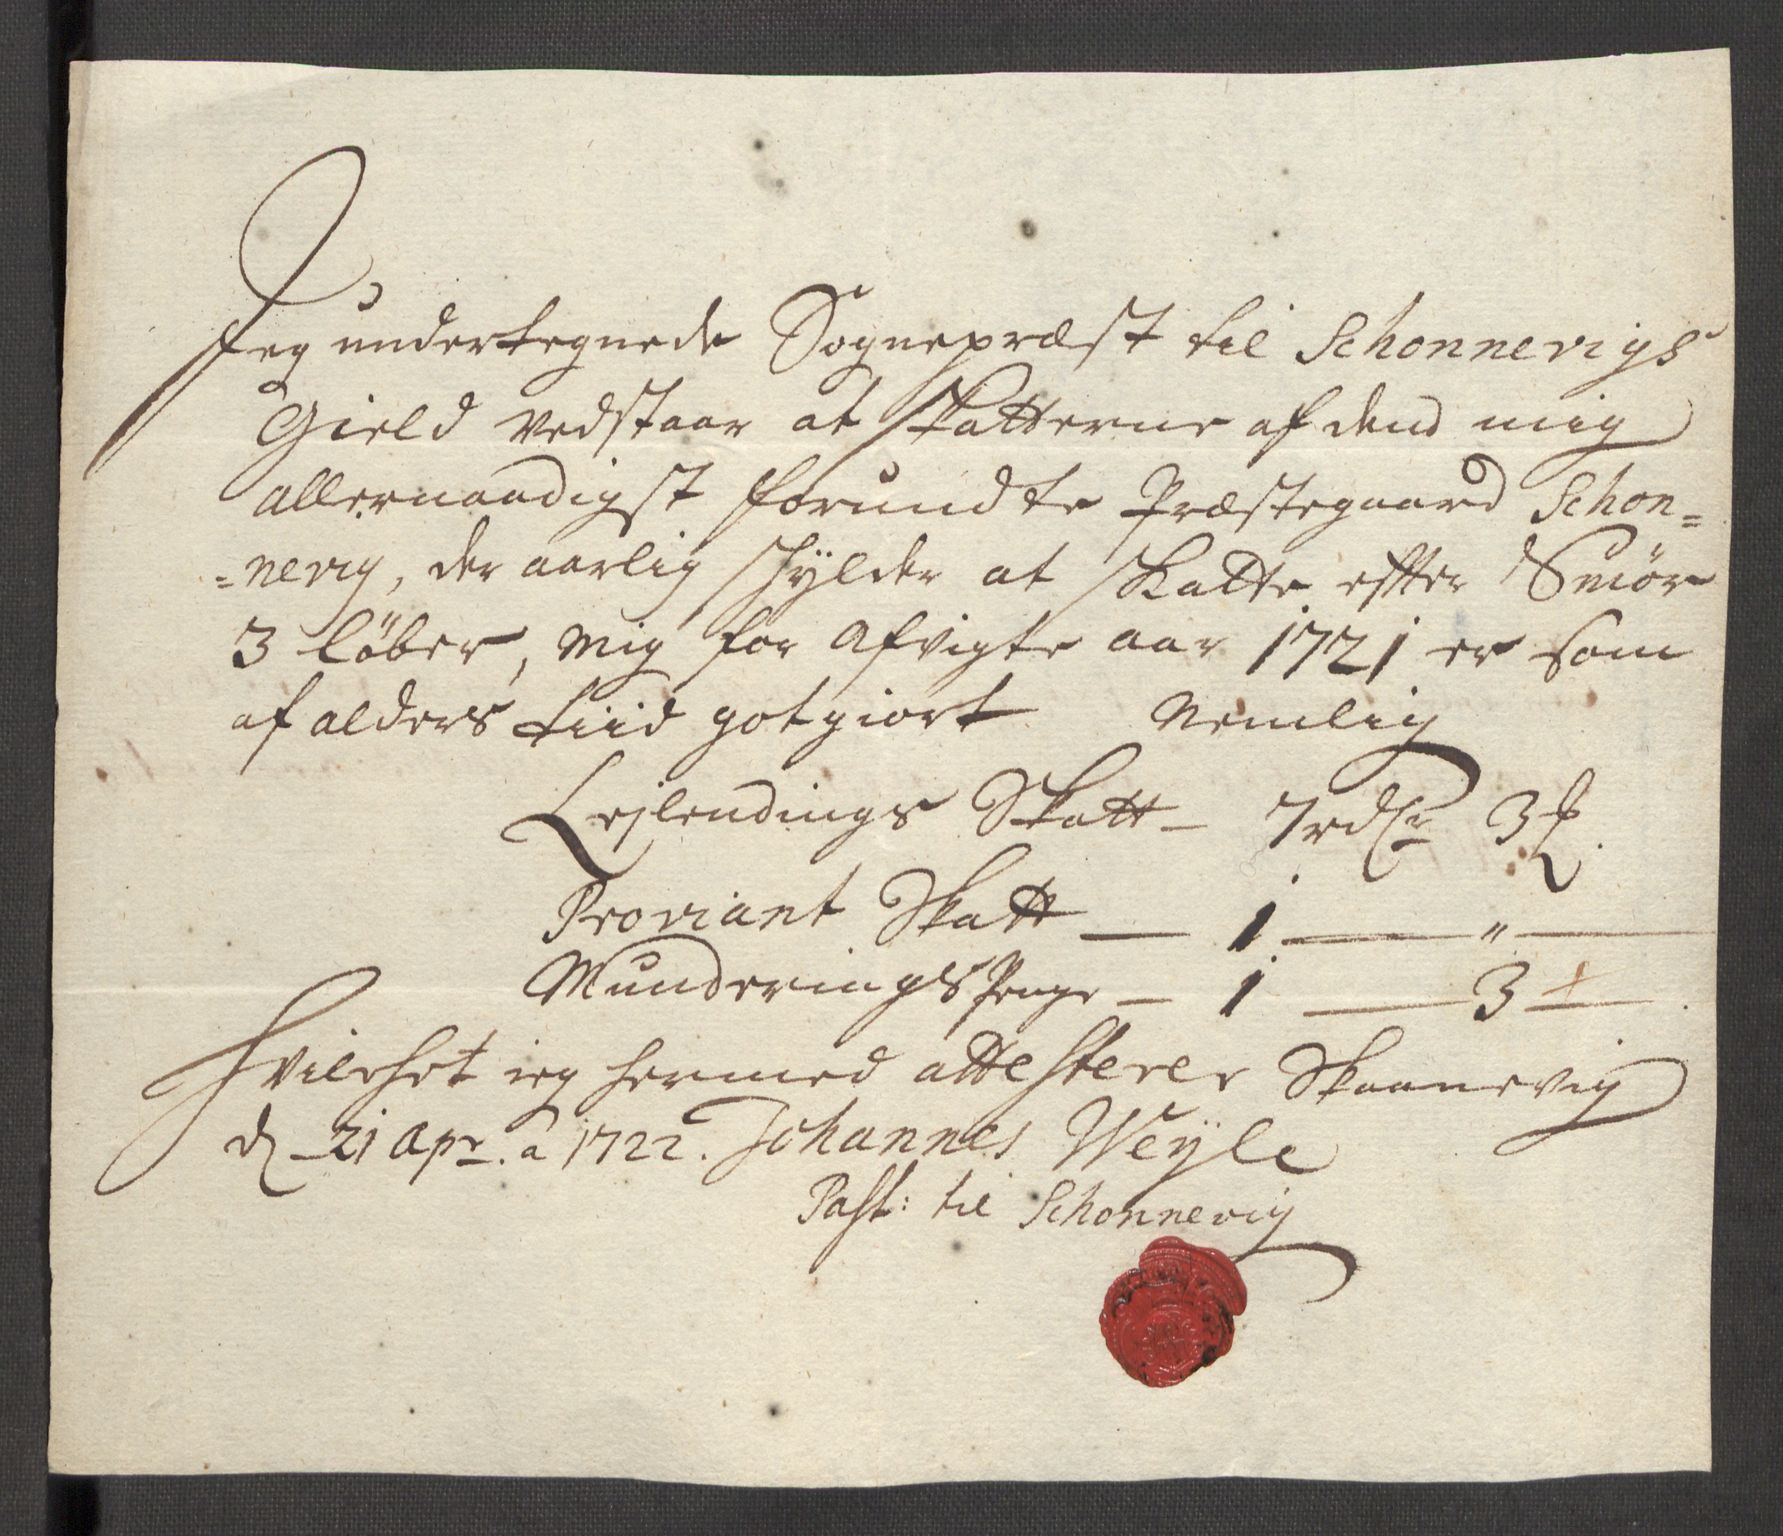 Jeg undertegnede Sognepræst til Schonnevigs
Gield vedstaar at skatterne af dend mig
allernaadigst forundte Præstegaard Schon=
=nevig, der aarlig skÿlder at skatte effter Smör
3 löber, mig for afvigte aar 1721 er som
af alders tiid gotgiort Nemlig
Lejlendings Skatt - 7 rdlr 3 ȝ.
Proviant Skatt — 1 — " —
Munderings Penge — 1 — 3 —
Hvilchet ieg hermed attesterer Skaanevig
d 21 Apr. a 1722. Johannes Weÿle
Past: til Schonnevig